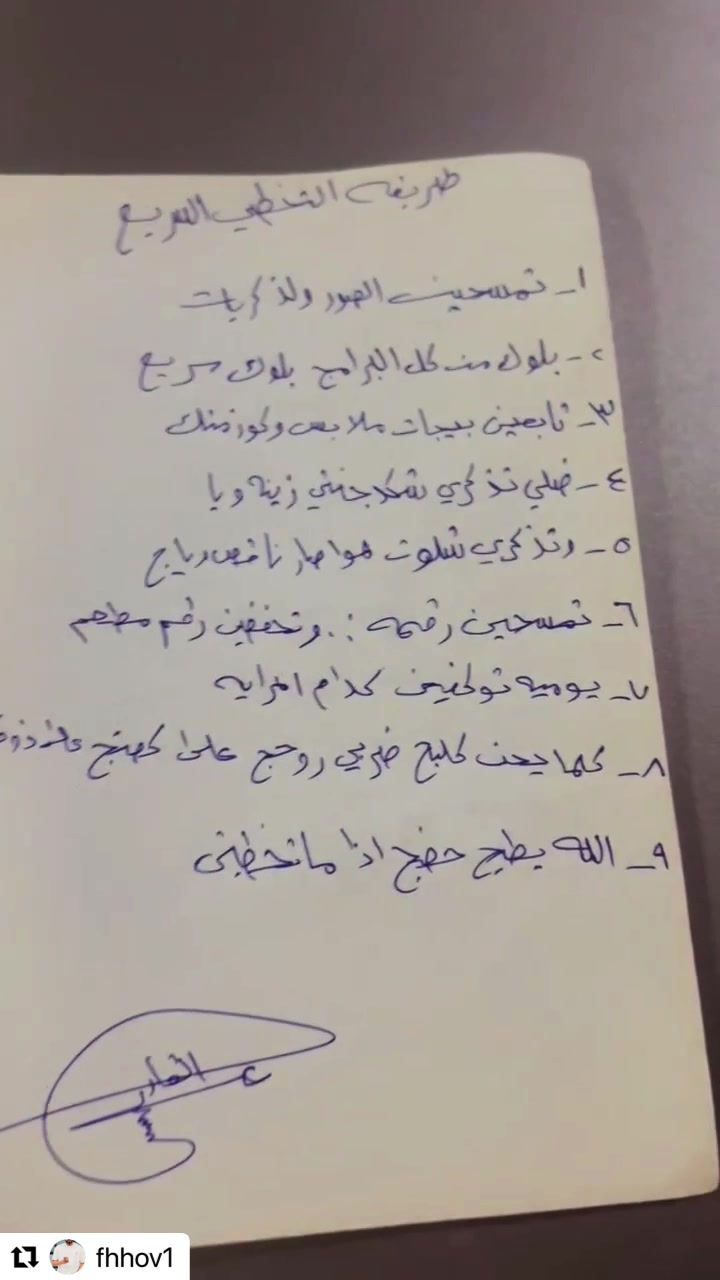 طريقه التخطي السريع
١ـ تمسحين الصور ولذكريات
٢ـ بلوك من كل البرامج بلوك سريع
٣ـ تابعين بيجات ملابس وكوزمتك
٤ـ ضلي تذكري شكد جنتي زينه ويا
٥ـ وتذكري شلون هوا صار ناقص وياج
٦ـ تمسحين رقمه :. وتحفضين رقم مطعم
٧ـ يوميه توكفين كدام المرايه
٨ـ كلما يحن كلبج ضربي روحج على كصتج
٩ـ الله يطيح حضج اذا ماتخطيتي
fhhov1